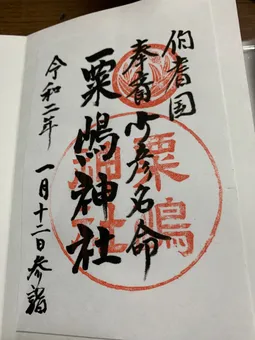 伯耆国
奉斎 少彦名命
粟嶋神社
令和二年
一月十二日参詣
粟嶋
神社